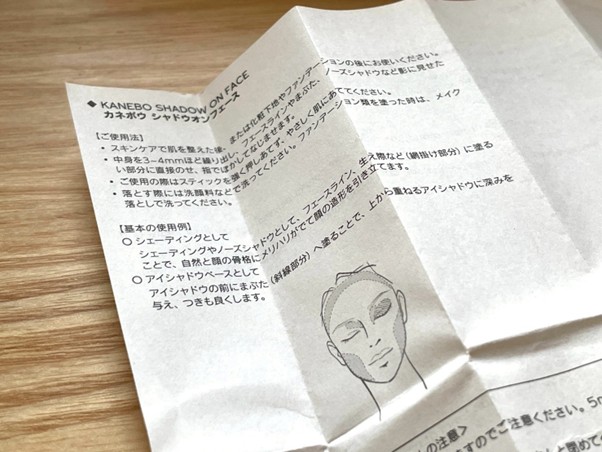 ◆ KANEBO SHADOW ON FACE
カネボウ シャドウオンフェース
【ご使用法】
・スキンケアで肌を整えた後、または化粧下地やファンデーションの後にお使いください。
・中身を3~4mmほど繰り出し、フェースラインやまぶた、ノーズシャドウなど影に見せた
い部分に直接のせ、指でぼかしてなじませます。
・ご使用の際はスティックを強く押しあてず、やさしく肌にあててください。
・落とす際には洗顔料などで洗ってください。ファンデーション類を塗った時は、メイク
落としで洗ってください。
【基本の使用例】
○ シェーディングとして
シェーディングやノーズシャドウとして、フェースライン、生え際など(網掛け部分)に塗る
ことで、自然と顔の骨格にメリハリがでて顔の造形を引き立てます。
○ アイシャドウベースとして
アイシャドウの前にまぶた(斜線部分)へ塗ることで、上から重ねるアイシャドウに深みを
与え、つきも良くします。
の注意>
ますのでご注意ください。5m
と閉めて